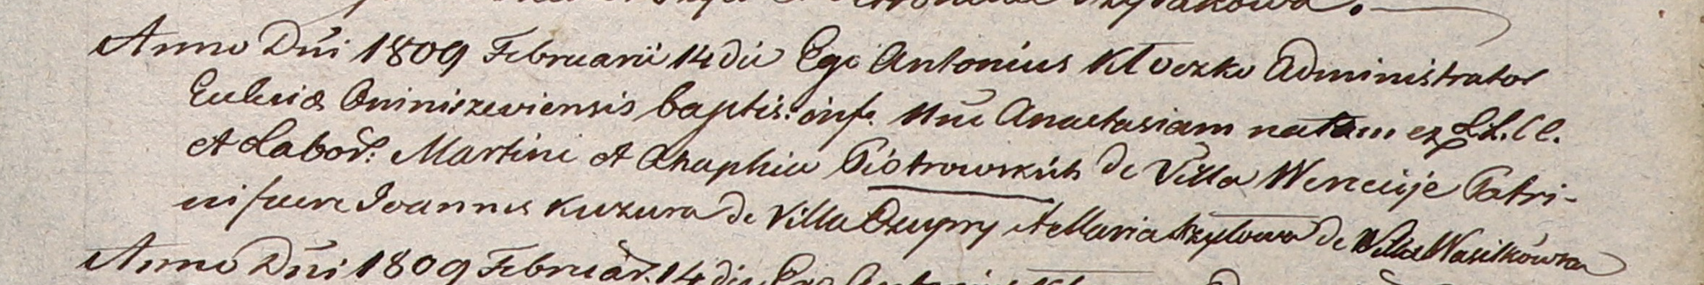 Anno Dñi 1809 Februarii 14 die Ego Antonius Kłoczko Administrator
Ecclesiæ Oniniszeviensis baptis: inf. nne Anastasiam natam ex LL. CC.
et Labor: Martini et Ahaphiæ Piotrowskich de Villa Werecije Patri-
ni fuere Joannes Kuzura de Villa Czupry et Maria de Villa Wasilkowka
Anno Dñi 1809 Februar. 14 die Ego